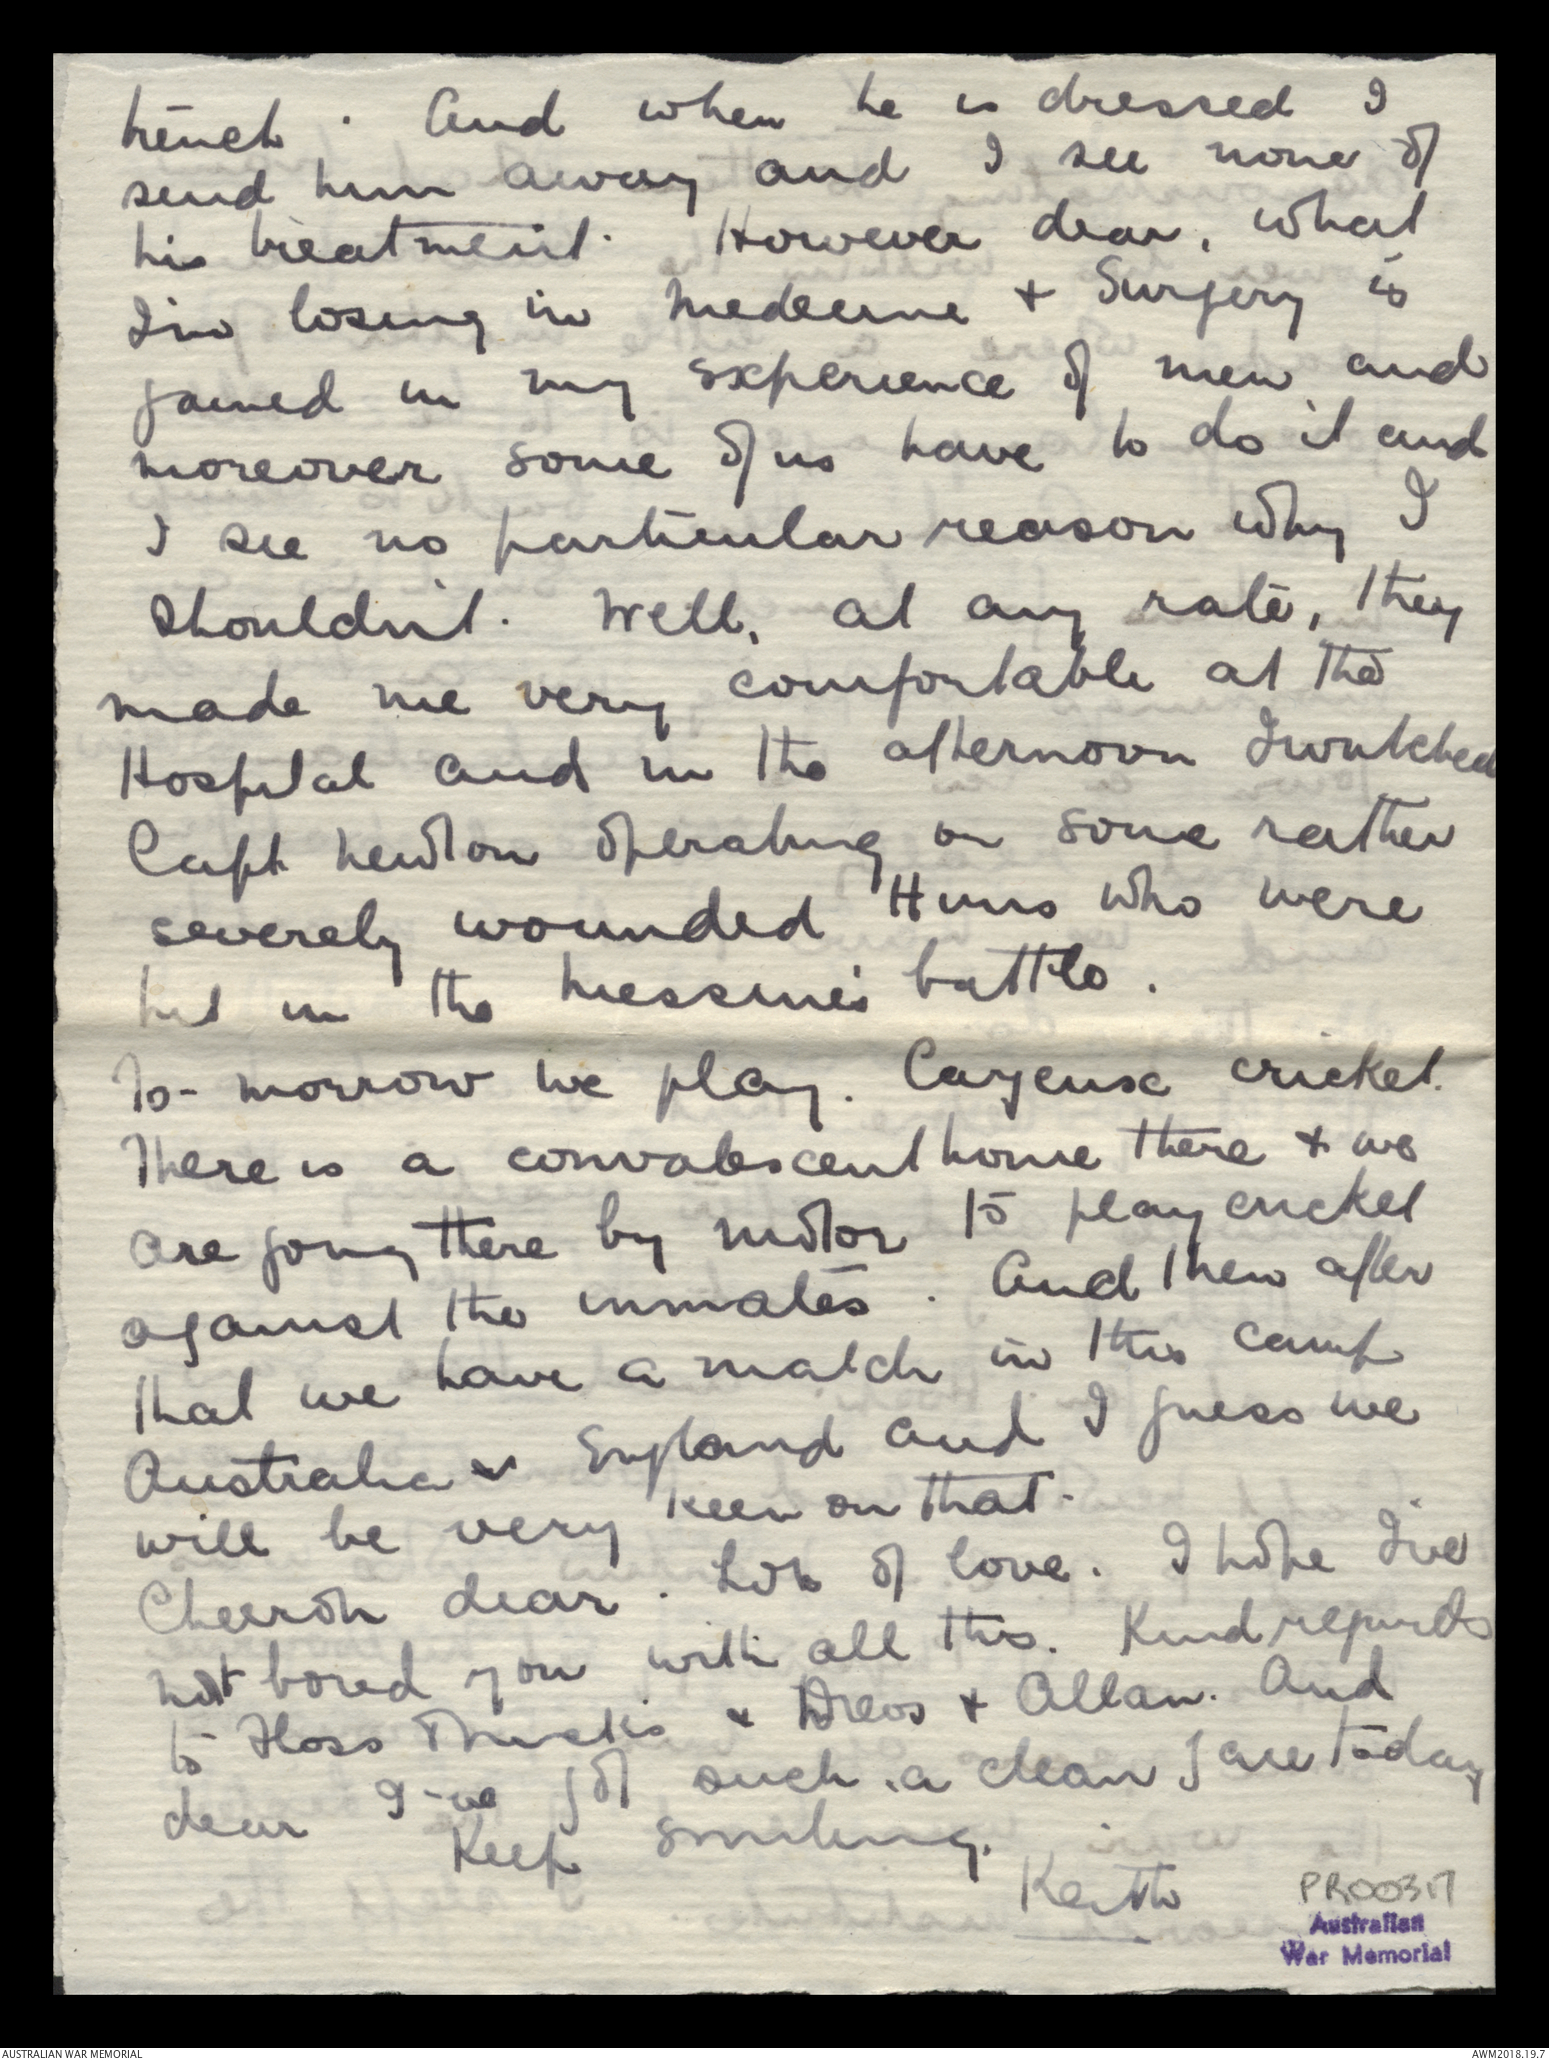 trench. And when he is dressed I
send him away and I see none of
his treatment. However dear, what
I'm losing in Medecine + Surgery is
gained in my experience of men and
moreover some of us have to do it and
I see no particular reason why I
shouldn't. Well, at any rate, they
made me very comfortable at the
Hospital and in the afternoon I watched
Capt Newton operating on some rather
severely wounded Huns who were
hit in the Messines battle.
To-morrow we play. Cayeux cricket.
There is a convalescent home there + we
are going there by motor to play cricket
against the inmates. And then after
that we have a match in this camp
Australia v England and I guess we
will be very keen on that.
Cheeroh dear. Lots of love. I hope I've
not bored you with all this. Kind regards
to Floss + Dreos + Allan. And
dear I've got such a clean face today
Keep smiling.
Keith
PR00317
Australian
War Memorial
AUSTRALIAN WAR MEMORIAL
AWM2018.19.7